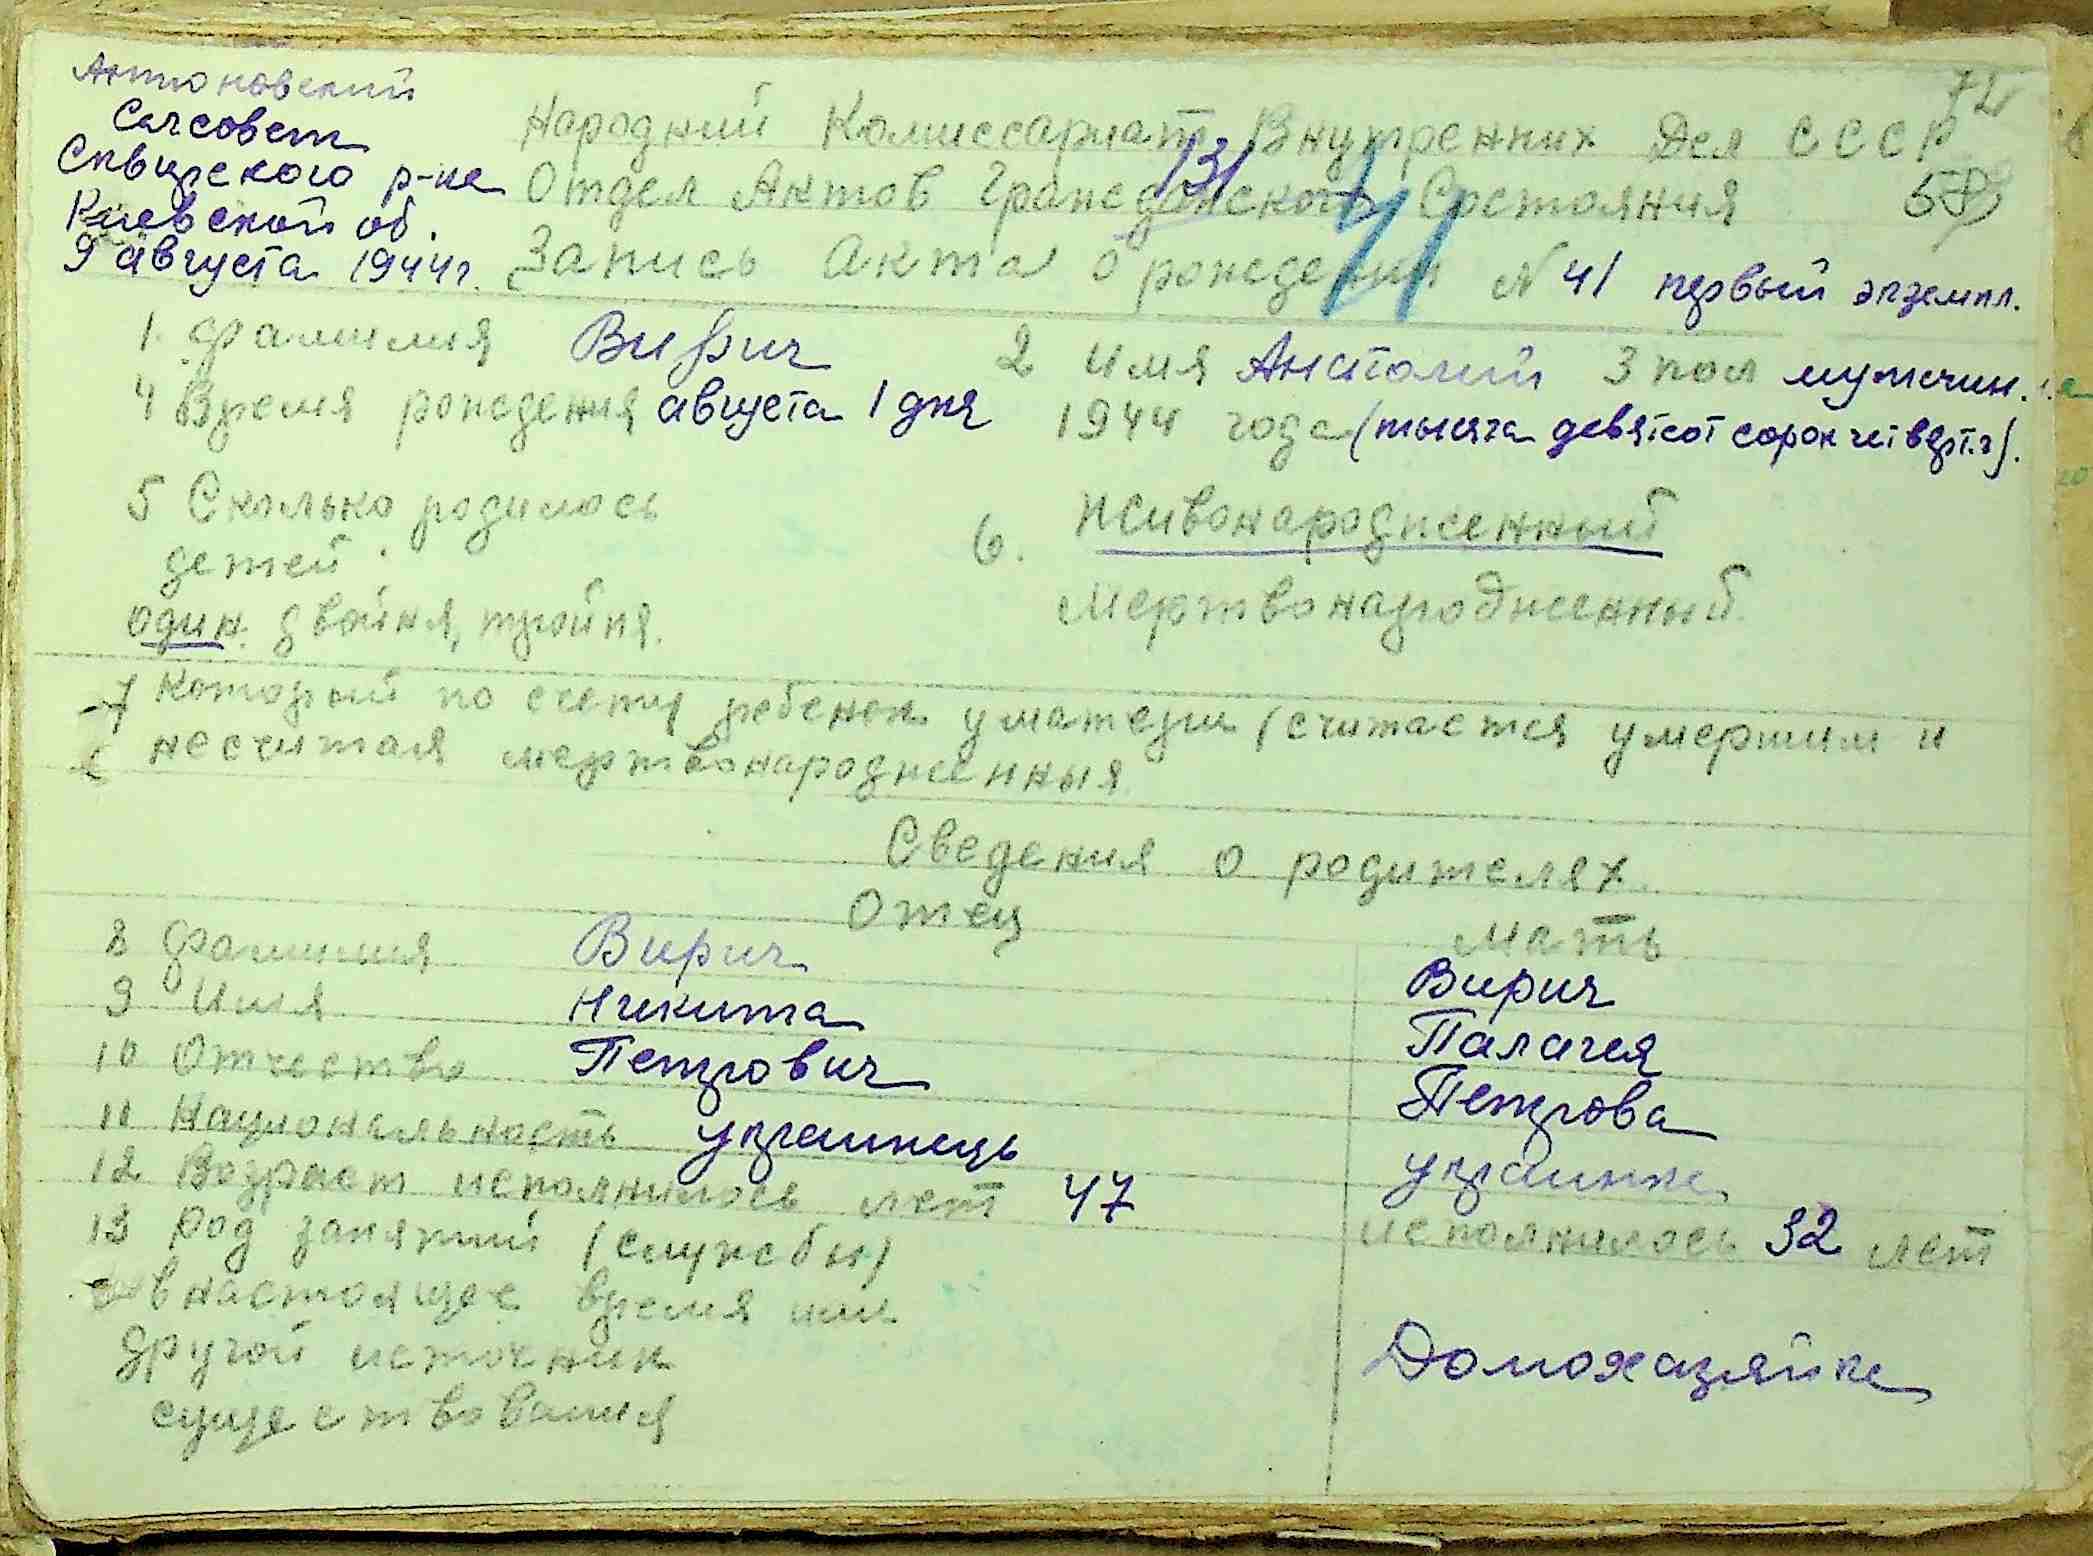 Антоновский
Сельсовет
Сквирского р-на
Киевской об.
9 августа 1944 г.
72
Народний Комиссариат Внутренних Дел СССР
131
Отдел Актов Гражданского Состояния
58
Запись Акта о рождении N 41 первый экземпл.
41
1. Фамилия Вирич 2 имя Анатолий 3 пол мужчин.
4 Время рождения августа 1 дня 1944 года (тысяча девятсот сорок четверт. г).
5 Сколько родилось
детей
один. двойня, тройня.
6. Живонародженный
Мертвонародженный.
7 Который по счету ребенок у матери (считается умершим и
несчитая мертвонародженныя
Сведения о родителях
Отец Мать
8 Фамилия Вирич Вирич
9 Имя Никита Палагея
10 Отчество Петрович Петрова
11 Национальность украинець украинка
12 Возраст исполнилось лет 47 исполнилось 32 лет
13 Род занятий (службы)
в настоящее время или
другой источник
существования
Домохазяйка